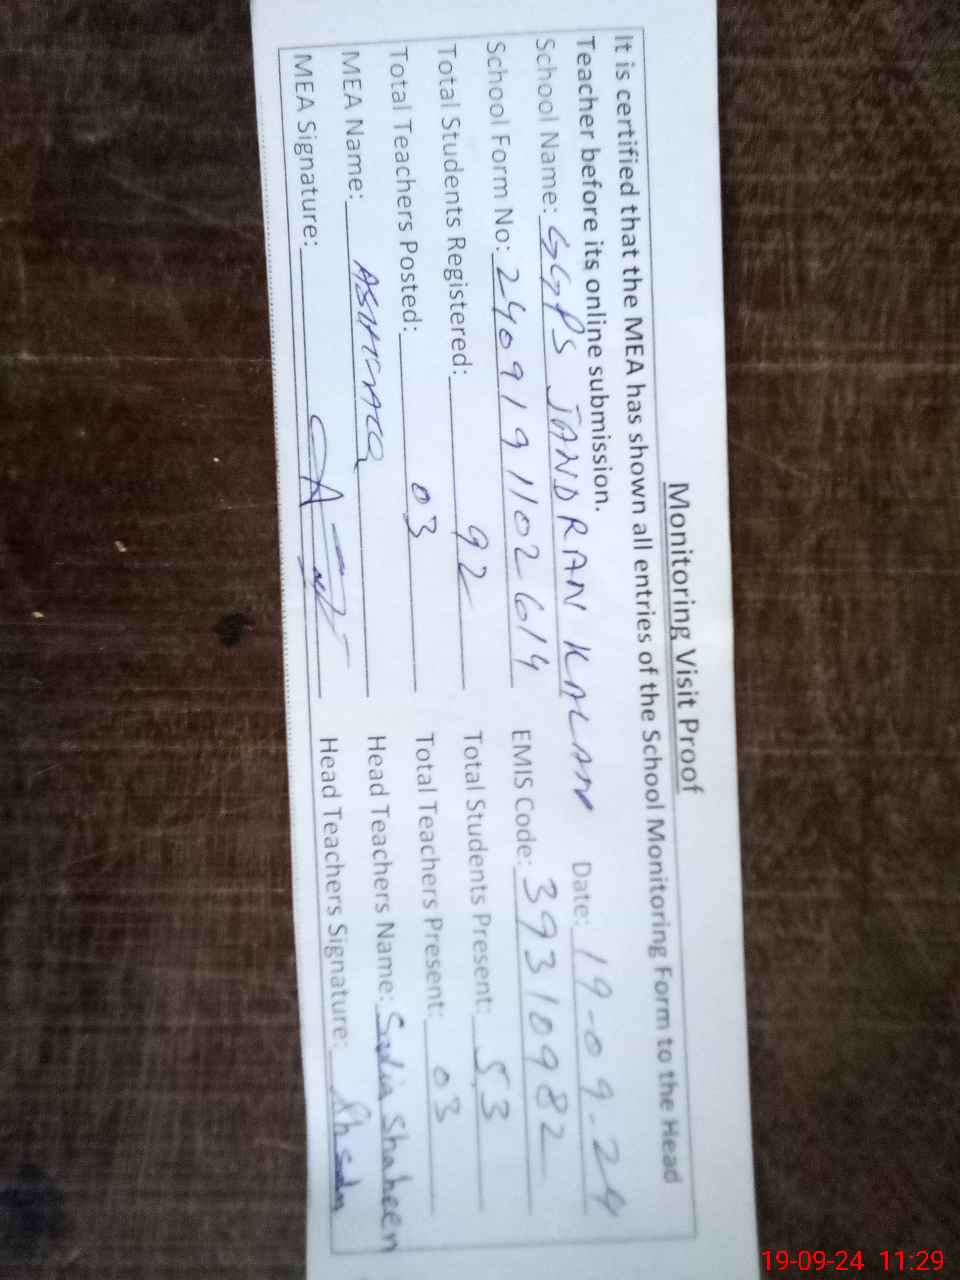 Monitoring Visit Proof
It is certified that the MEA has shown all entries of the School Monitoring Form to the Head
Teacher before its online submission.
School Name: GGPS JANDRAN KALAN Date: 19-09-24
School Form No: 2409191102614 EMIS Code: 39310982
Total Students Registered: 92 Total Students Present: 53
Total Teachers Posted: 03 Total Teachers Present: 03
MEA Name: ASHFAQ Head Teachers Name: Sadia Shaheen
MEA Signature: Head Teachers Signature:
19-09-24 11:29